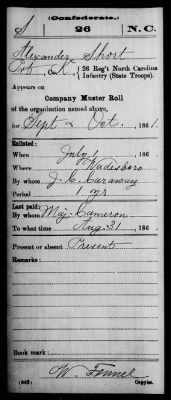 (Confederate.)
S 26 N.C.
Alexander Short
Pvt, Co. K, 26 Reg't North Carolina
Infantry (State Troops).
Appears on
Company Muster Roll
of the organization named above,
for Sept & Oct., 1861.
Enlisted:
When July 1, 186
Where Wadesboro
By whom J. C. Caraway
Period 1 yr
Last paid:
By whom Maj. Cameron
To what time Aug. 31, 186
Present or absent Present
Remarks:
Book mark:
(642) Copyist.